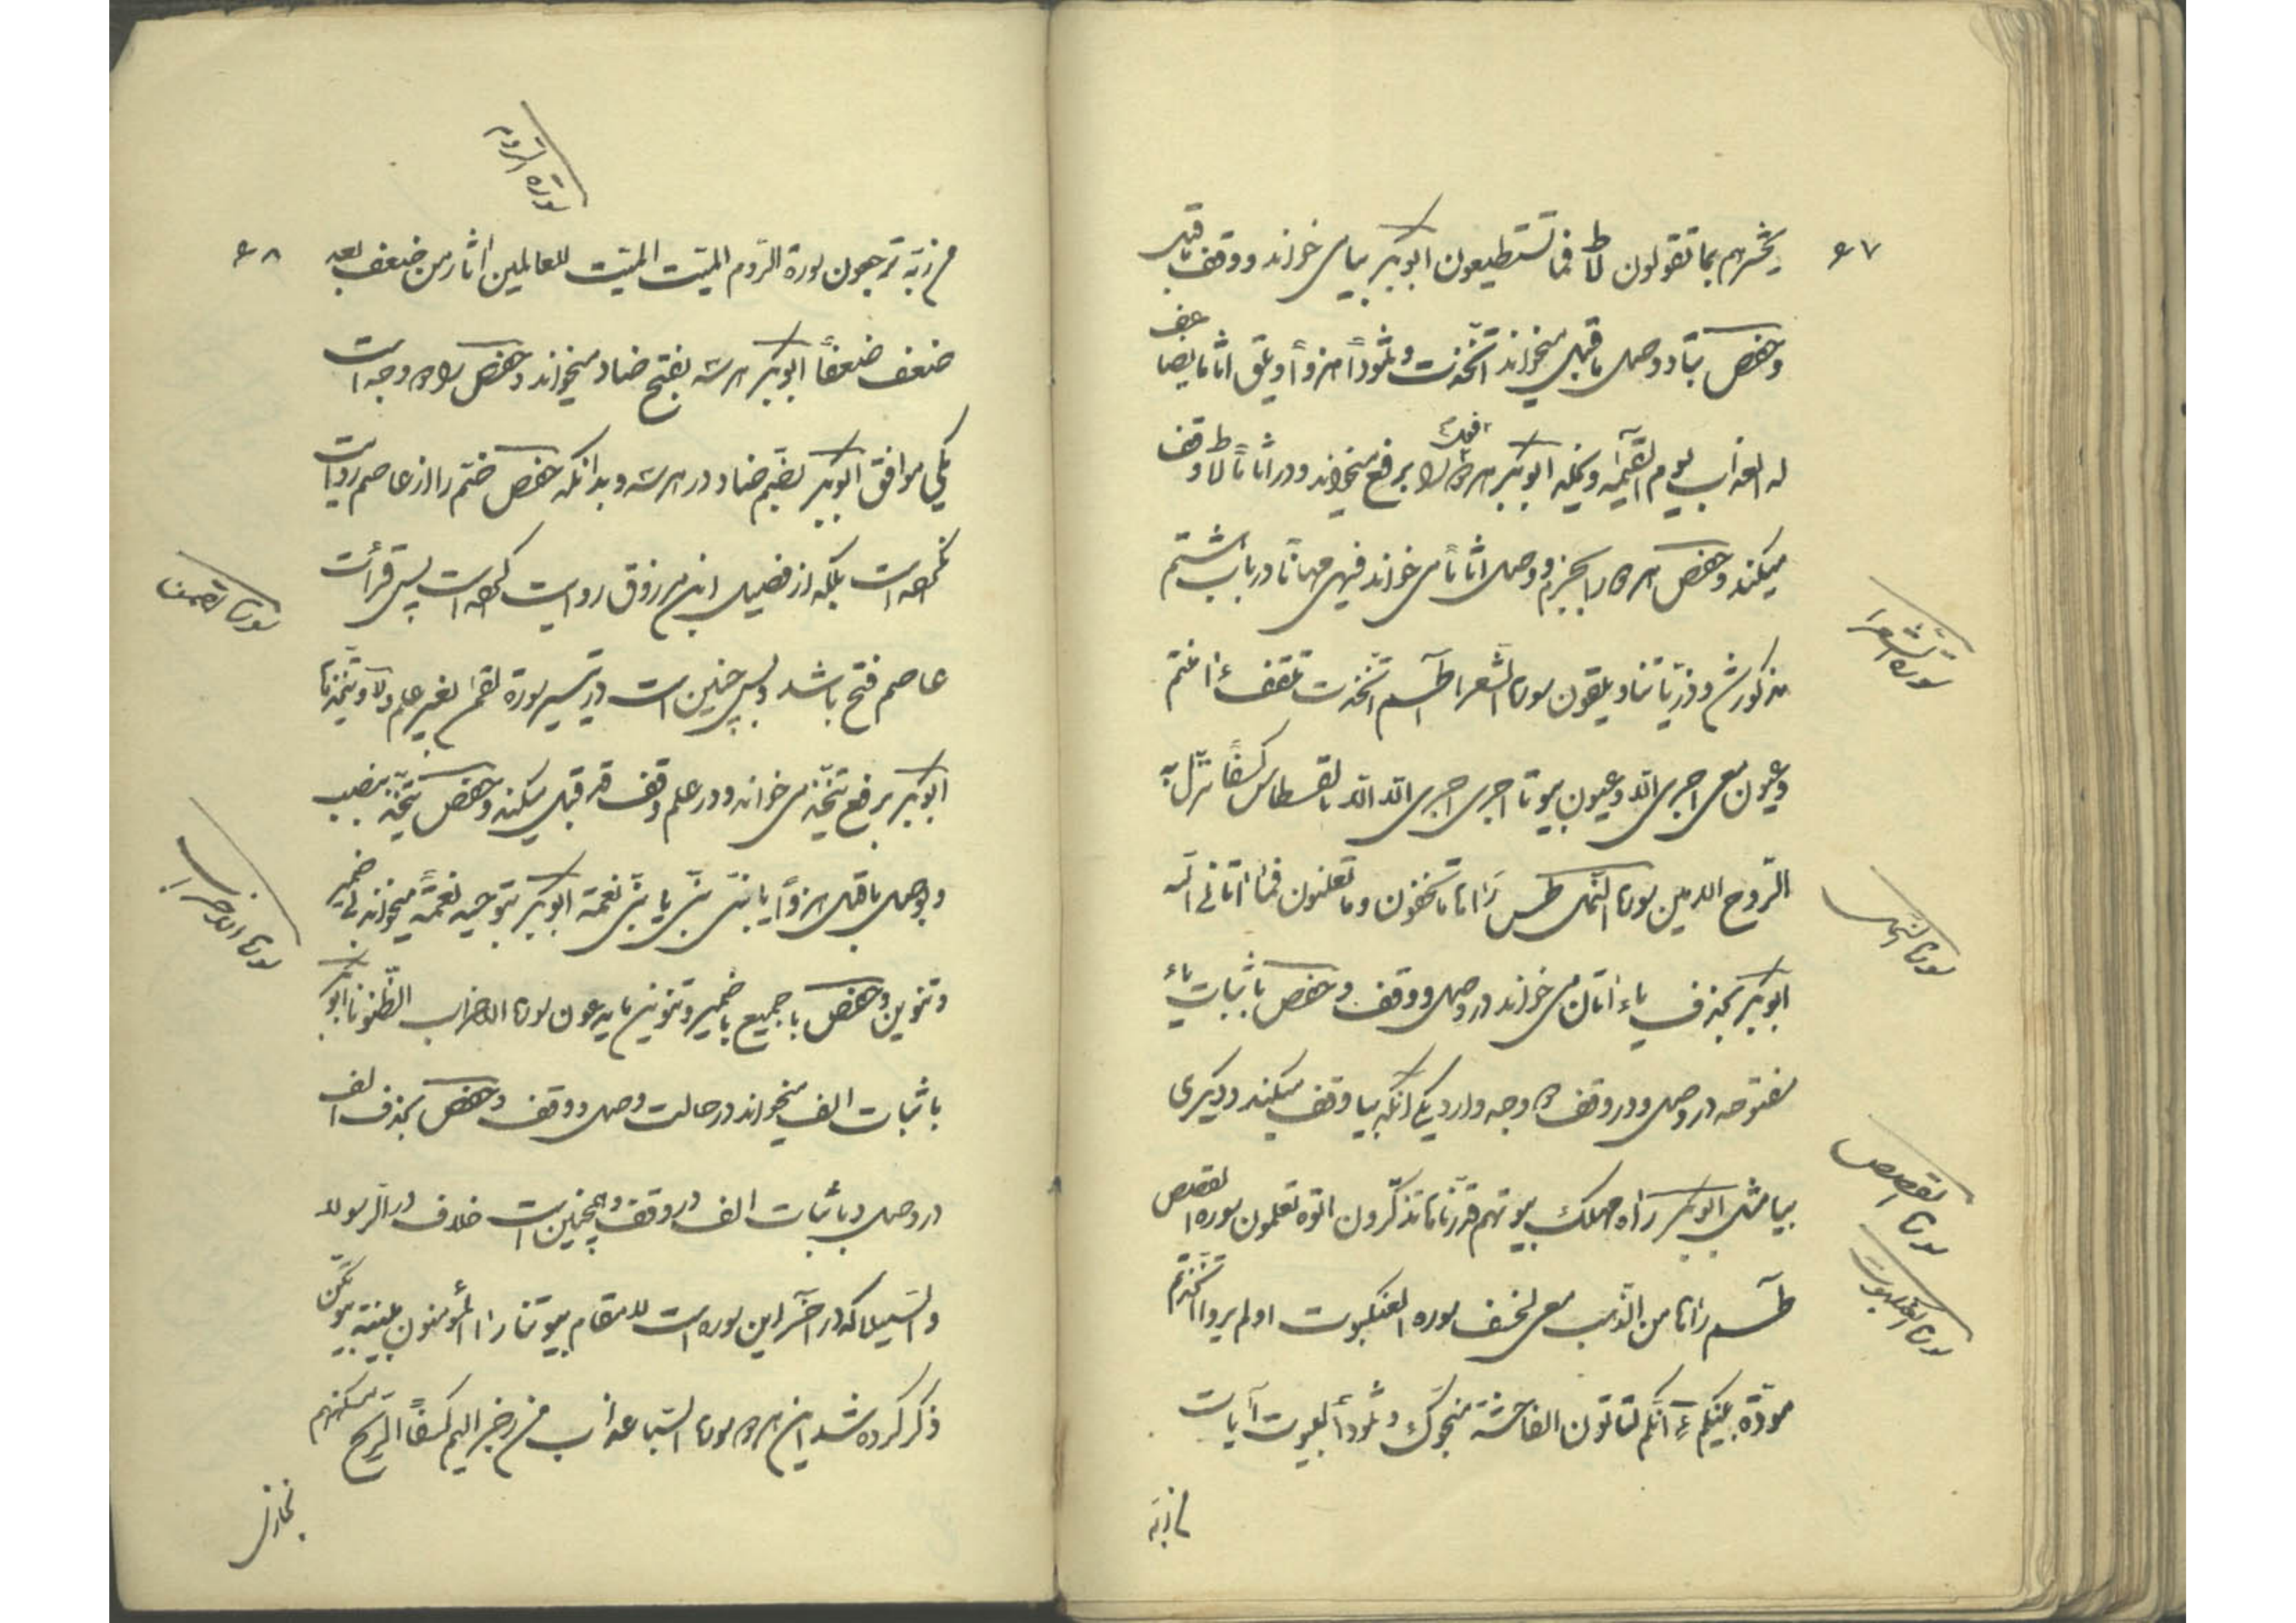 ۶۷
یحشرهم بما تقولون ط فما تستطیعون ابوبکر بیا می خواند و وقف ماقبل
وحفص بتا و وصل ماقبل میخواند اتخذت و ثمودا هزوا و یلق اثاما یضاعف
له العذاب یوم القیمه و یخلد ابوبکر هر دو فعل را برفع میخواند و در اثاما ط وقف
میکند و حفص هر دو را بجزم و وصل اثاما می خواند فیهی مهانا در باب شتم
سورة الشعرا
مذکور شد و ذریاتنا و یلقون سورة الشعرا طسم اتخذت تلقف ءامنتم
وعیون معی اجری الا وعیون بیوتا اجری اجری الا الا بالقسطاس کسفا نزل به
سورة النمل
الروح الامین سورة النمل طس راها ما تخفون وما تعلنون فما اتانی الله
ابوبکر بحذف یاء اتان می خواند در وصل و وقف و حفص باثبات یاء
مفتوحه در وصل و در وقف دو وجه دارد یکی انکه بیا وقف میکند و دیگری
سورة القصص
بیا مثل ابوبکر راه مهلک بیوتهم قدرناها تذکرون اتوه تعلمون سوره القصص
سورة العنکبوت
طسم راها من الرهب معی لخسف سوره العنکبوت اولم یروا اتخذتم
مودة بینکم ءانکم لتاتون الفاحشة منجوک و ثمودا البیوت آیات
من ربه
سورة الروم
۶۸
من ربه ترجعون سورة الروم المیت المیت للعالمین اثار من ضعف بعد
ضعف ضعفا ابوبکر هر سه بفتح ضاد میخواند و حفص را دو وجه است
یکی موافق ابوبکر بضم ضاد در هر سه و بدانکه حفص ضم را از عاصم روایت
سورة لقمن
نکرده است بلکه از فضیل ابن مرزوق روایت کرده است پس قرائت
عاصم فتح باشد و بس چنین است در تیسیر سورة لقمن بغیر علم ولا و یتخذها
ابوبکر برفع یتخذ می خواند و در علم وقف قد قبل میکند و حفص یتخذ بنصب
سورة الاحزاب
و بوصل ماقبل هزوا یا بنی یا بنی نعمة ابوبکر بتوحید نعمة میخواند بی ضمیر
وتنوین و حفص با جمیع با ضمیر و تنوین ما یدعون سورة الاحزاب الظنونا ابوبکر
باثبات الف میخواند در حالت وصل و وقف و حفص بحذف الف
در وصل و باثبات الف در وقف و همچنین است خلاف در الرسولا
والسبیلا که در آخر این سوره است لا مقام بیوتنا را المؤمنون مبینة بیوتکن
ذکر کرده شد این هر دو سورة السبا عذاب من رجز الیم کسفا الریح مسکنهم
نجازی